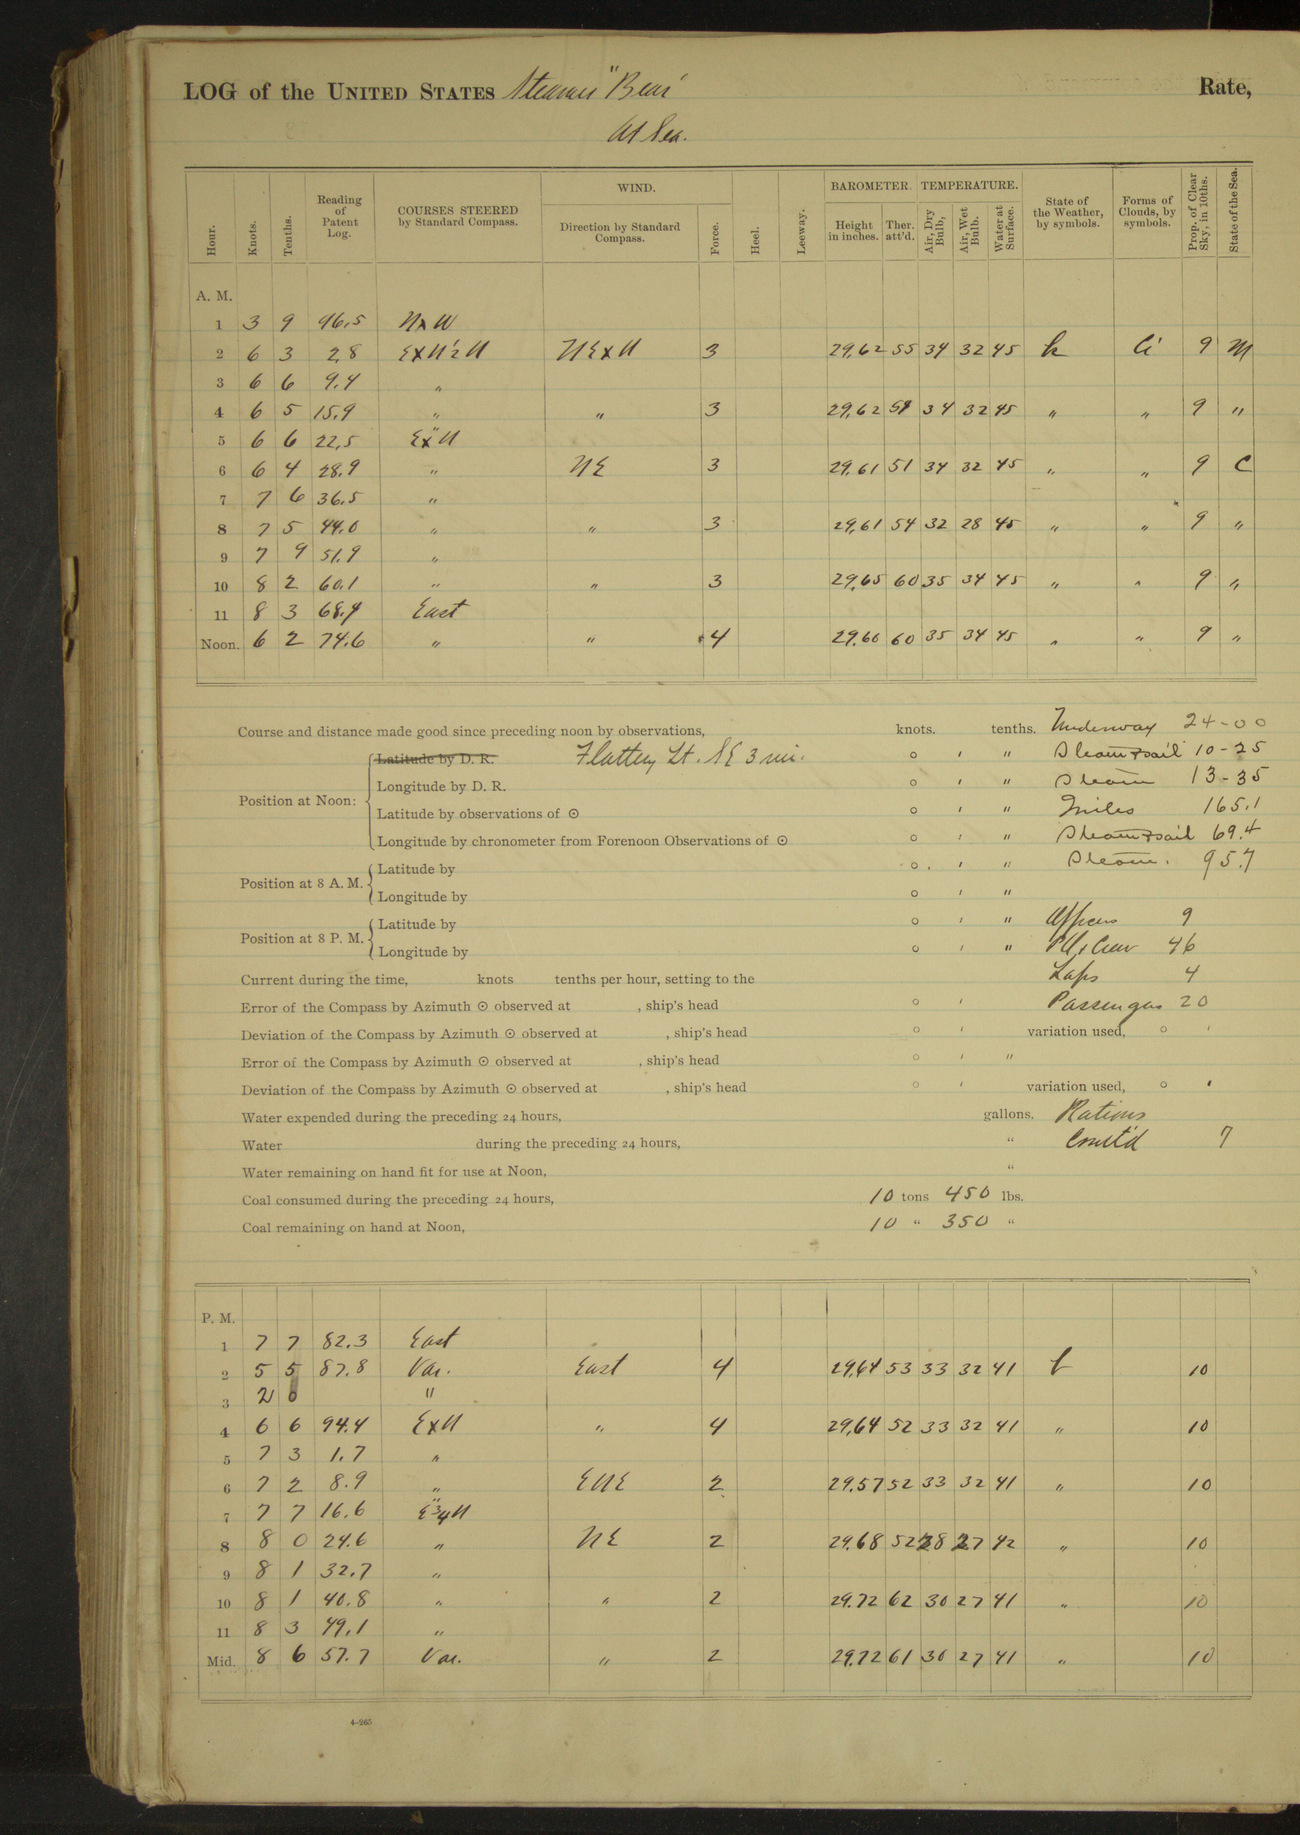 LOG of the UNITED STATES Steamer "Bear" Rate,
At Sea.
Hour. Knots. Tenths. Reading of Patent Log. COURSES STEERED by Standard Compass. WIND. Direction by Standard Compass. Force. Heel. Leeway. BAROMETER. Height in inches. Ther. att'd. TEMPERATURE. Air, Dry Bulb, Air, Wet Bulb. Water at Surface. State of the Weather, by symbols. Forms of Clouds, by symbols. Prop. of Clear Sky, in 10ths. State of the Sea.
A. M.
1 3 9 96.5 NxW
2 6 3 2.8 ExN½N NExN 3 29.62 55 34 32 45 b Ci 9 M
3 6 6 9.4 "
4 6 5 15.9 " " 3 29.62 51 34 32 45 " " 9 "
5 6 6 22.5 ExN
6 6 4 28.9 " NE 3 29.61 51 34 32 45 " " 9 C
7 7 6 36.5 "
8 7 5 44.0 " " 3 29.61 54 32 28 45 " " 9 "
9 7 9 51.9 "
10 8 2 60.1 " " 3 29.65 60 35 34 45 " " 9 "
11 8 3 68.4 East
Noon. 6 2 74.6 " " 4 29.66 60 35 34 45 " " 9 "
Course and distance made good since preceding noon by observations, knots. tenths. Underway 24-00
Position at Noon: Latitude by D. R. Flattery Lt. SE 3 mi. ° ' " Steam & sail 10-25
Longitude by D. R. ° ' " Steam 13-35
Latitude by observations of ☉ ° ' " Miles 165.1
Longitude by chronometer from Forenoon Observations of ☉ ° ' " Steam & sail 69.4
Position at 8 A. M. Latitude by ° ' " Steam. 95.7
Longitude by ° ' "
Position at 8 P. M. Latitude by ° ' " Officers 9
Longitude by ° ' " P.O. & Crew 46
Current during the time, knots tenths per hour, setting to the Laps 4
Error of the Compass by Azimuth ☉ observed at , ship's head ° ' Passengers 20
Deviation of the Compass by Azimuth ☉ observed at , ship's head ° ' variation used, ° '
Error of the Compass by Azimuth ☉ observed at , ship's head ° ' "
Deviation of the Compass by Azimuth ☉ observed at , ship's head ° ' variation used, ° '
Water expended during the preceding 24 hours, gallons. Rations
Water during the preceding 24 hours, " Comt'd 7
Water remaining on hand fit for use at Noon, "
Coal consumed during the preceding 24 hours, 10 tons 450 lbs.
Coal remaining on hand at Noon, 10 " 350 "
P. M.
1 7 7 82.3 East
2 5 5 87.8 Var. East 4 29.64 53 33 32 41 b 10
3 2 0 "
4 6 6 94.4 ExN " 4 29.64 52 33 32 41 " 10
5 7 3 1.7 "
6 7 2 8.9 " ENE 2 29.57 52 33 32 41 " 10
7 7 7 16.6 E¾N
8 8 0 24.6 " NE 2 29.68 52 28 27 42 " 10
9 8 1 32.7 "
10 8 1 40.8 " " 2 29.72 62 30 27 41 " 10
11 8 3 49.1 "
Mid. 8 6 57.7 Var. " 2 29.72 61 30 27 41 " 10
4-265